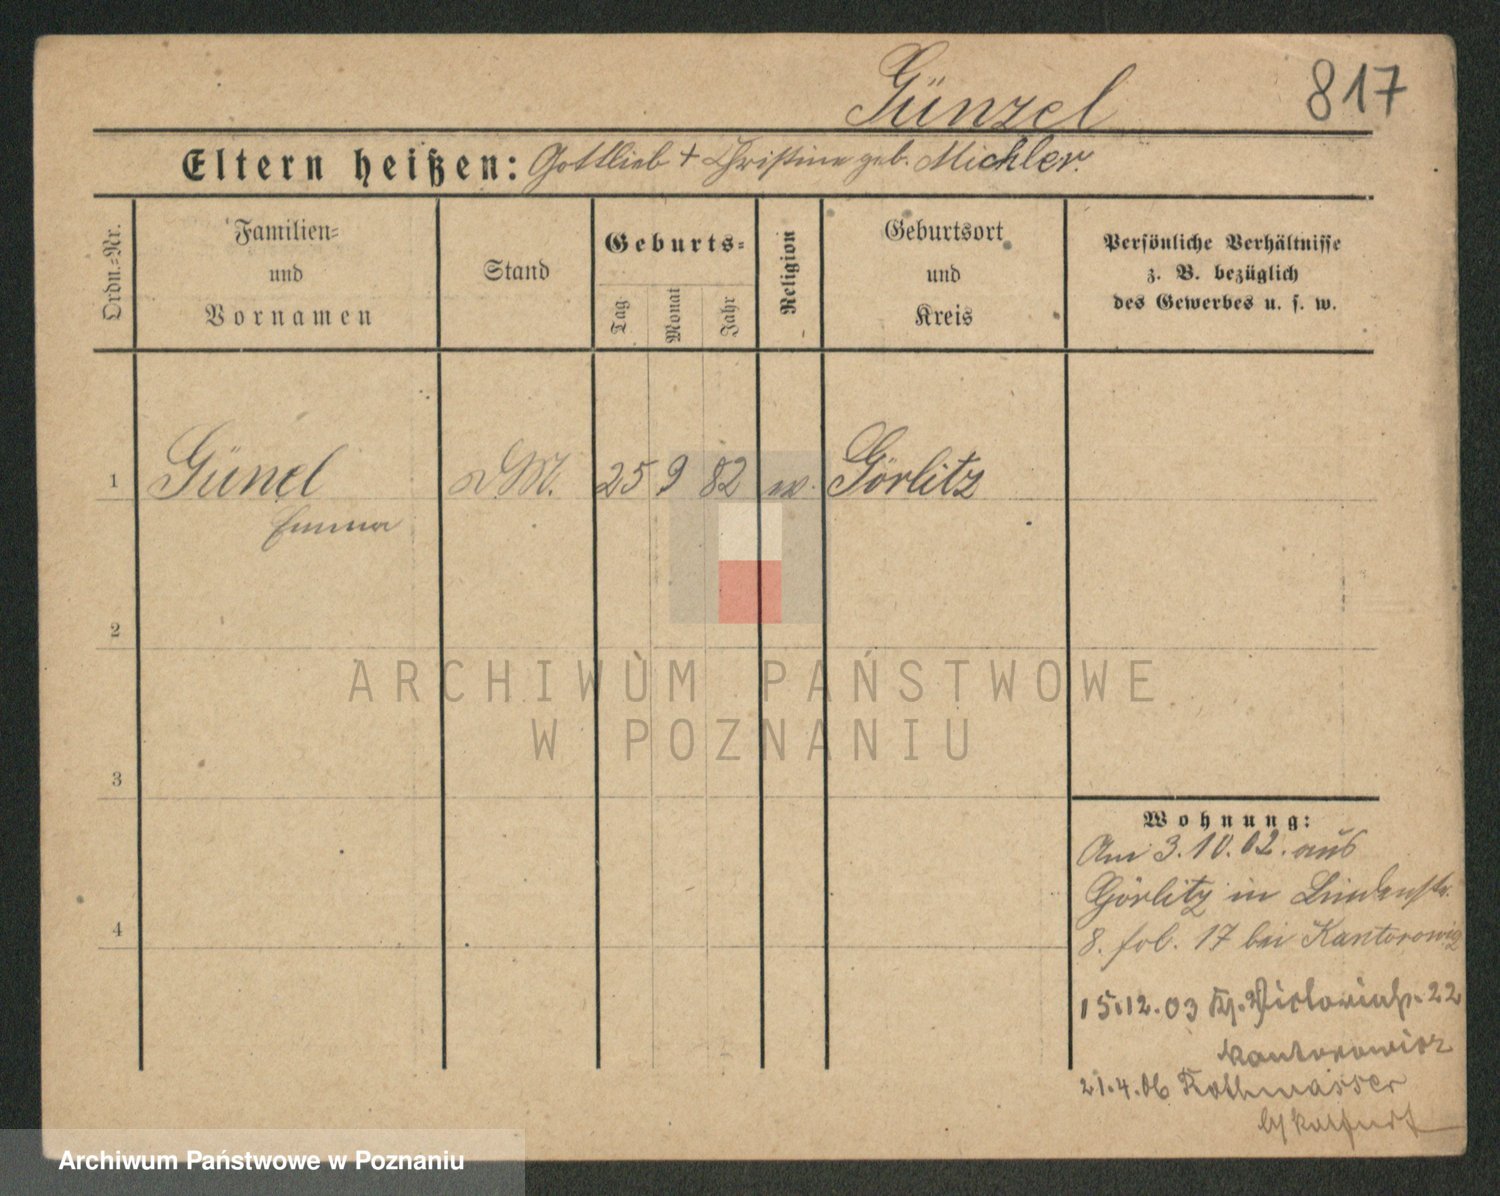 Günzel
817
Eltern heißen: Gottlieb + Christine geb. Michler.
Ordn.=Nr.
Familien=
und
Vornamen
Stand
Geburts=
Tag
Monat
Jahr
Religion
Geburtsort
und
Kreis
Persönliche Verhältnisse
z. B. bezüglich
des Gewerbes u. s. w.
1 Günel DM. 25 9 82 ev. Görlitz
Emma
2
3
4
ARCHIWUM PAŃSTWOWE
W POZNANIU
Wohnung:
Am 3.10.02. aus
Görlitz in Lindenstr.
8. fol. 17 bei Kantorowicz
15.12.03 Victoriastr. 22
Kantorowicz
21.4.06 Rothwasser
Archiwum Państwowe w Poznaniu